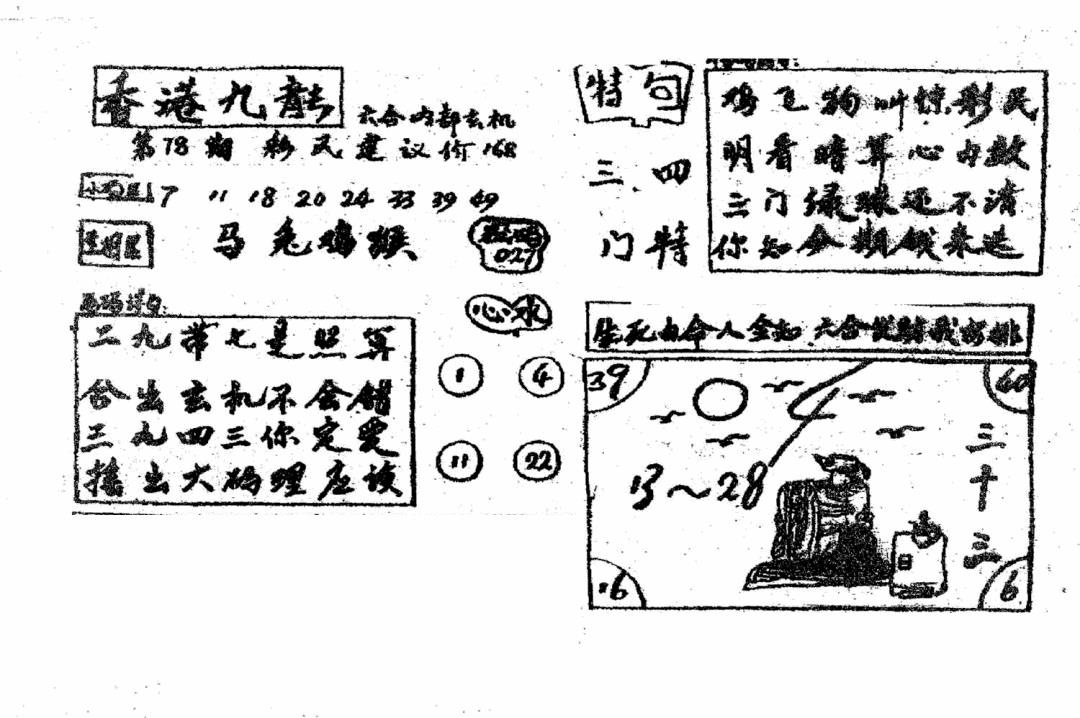 香港九龍
六合内部玄机
第78期 彩民建议价168
7 11 18 20 24 33 39 49
马兔鸡猴
027
心水
二九带七是照算
合出玄机不会错
三九四三你定爱
搖出大码理应该
1 4
11 22
特句
三.四
门特
鸡飞狗叫惊彩民
明看暗算心内数
三门绿珠还不清
你知今期钱来送
生死由命人全知 六合
39
13~28
三十三
6